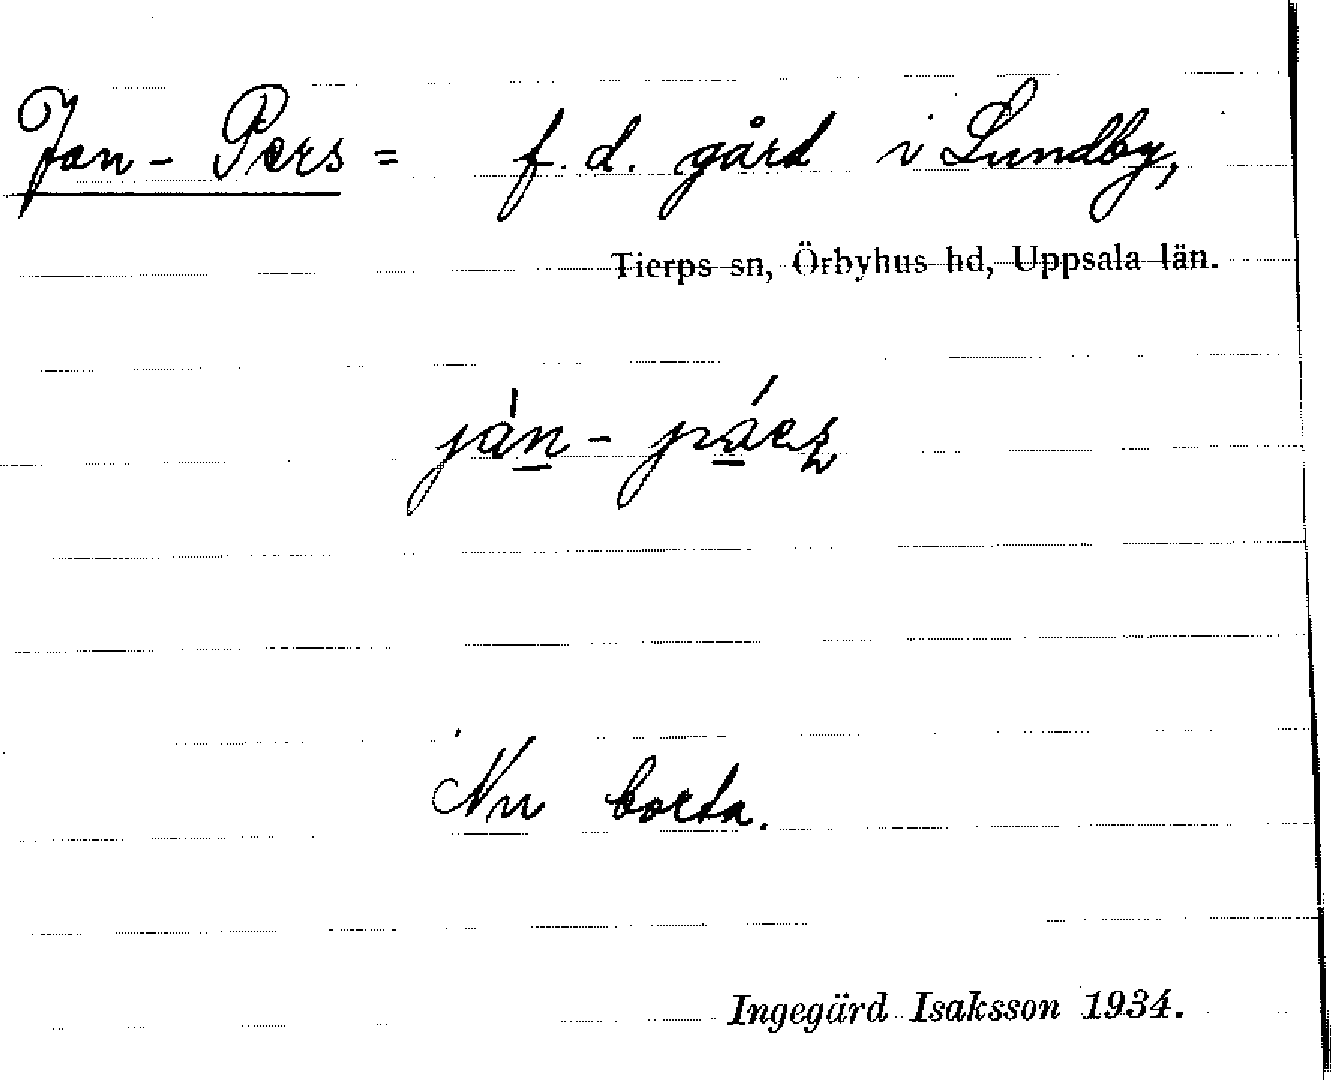 Jan-Pers = f.d. gård i Lundby,
Tierps sn, Örbyhus hd, Uppsala län.
ján-
Nu borta.
Ingegärd Isaksson 1934.